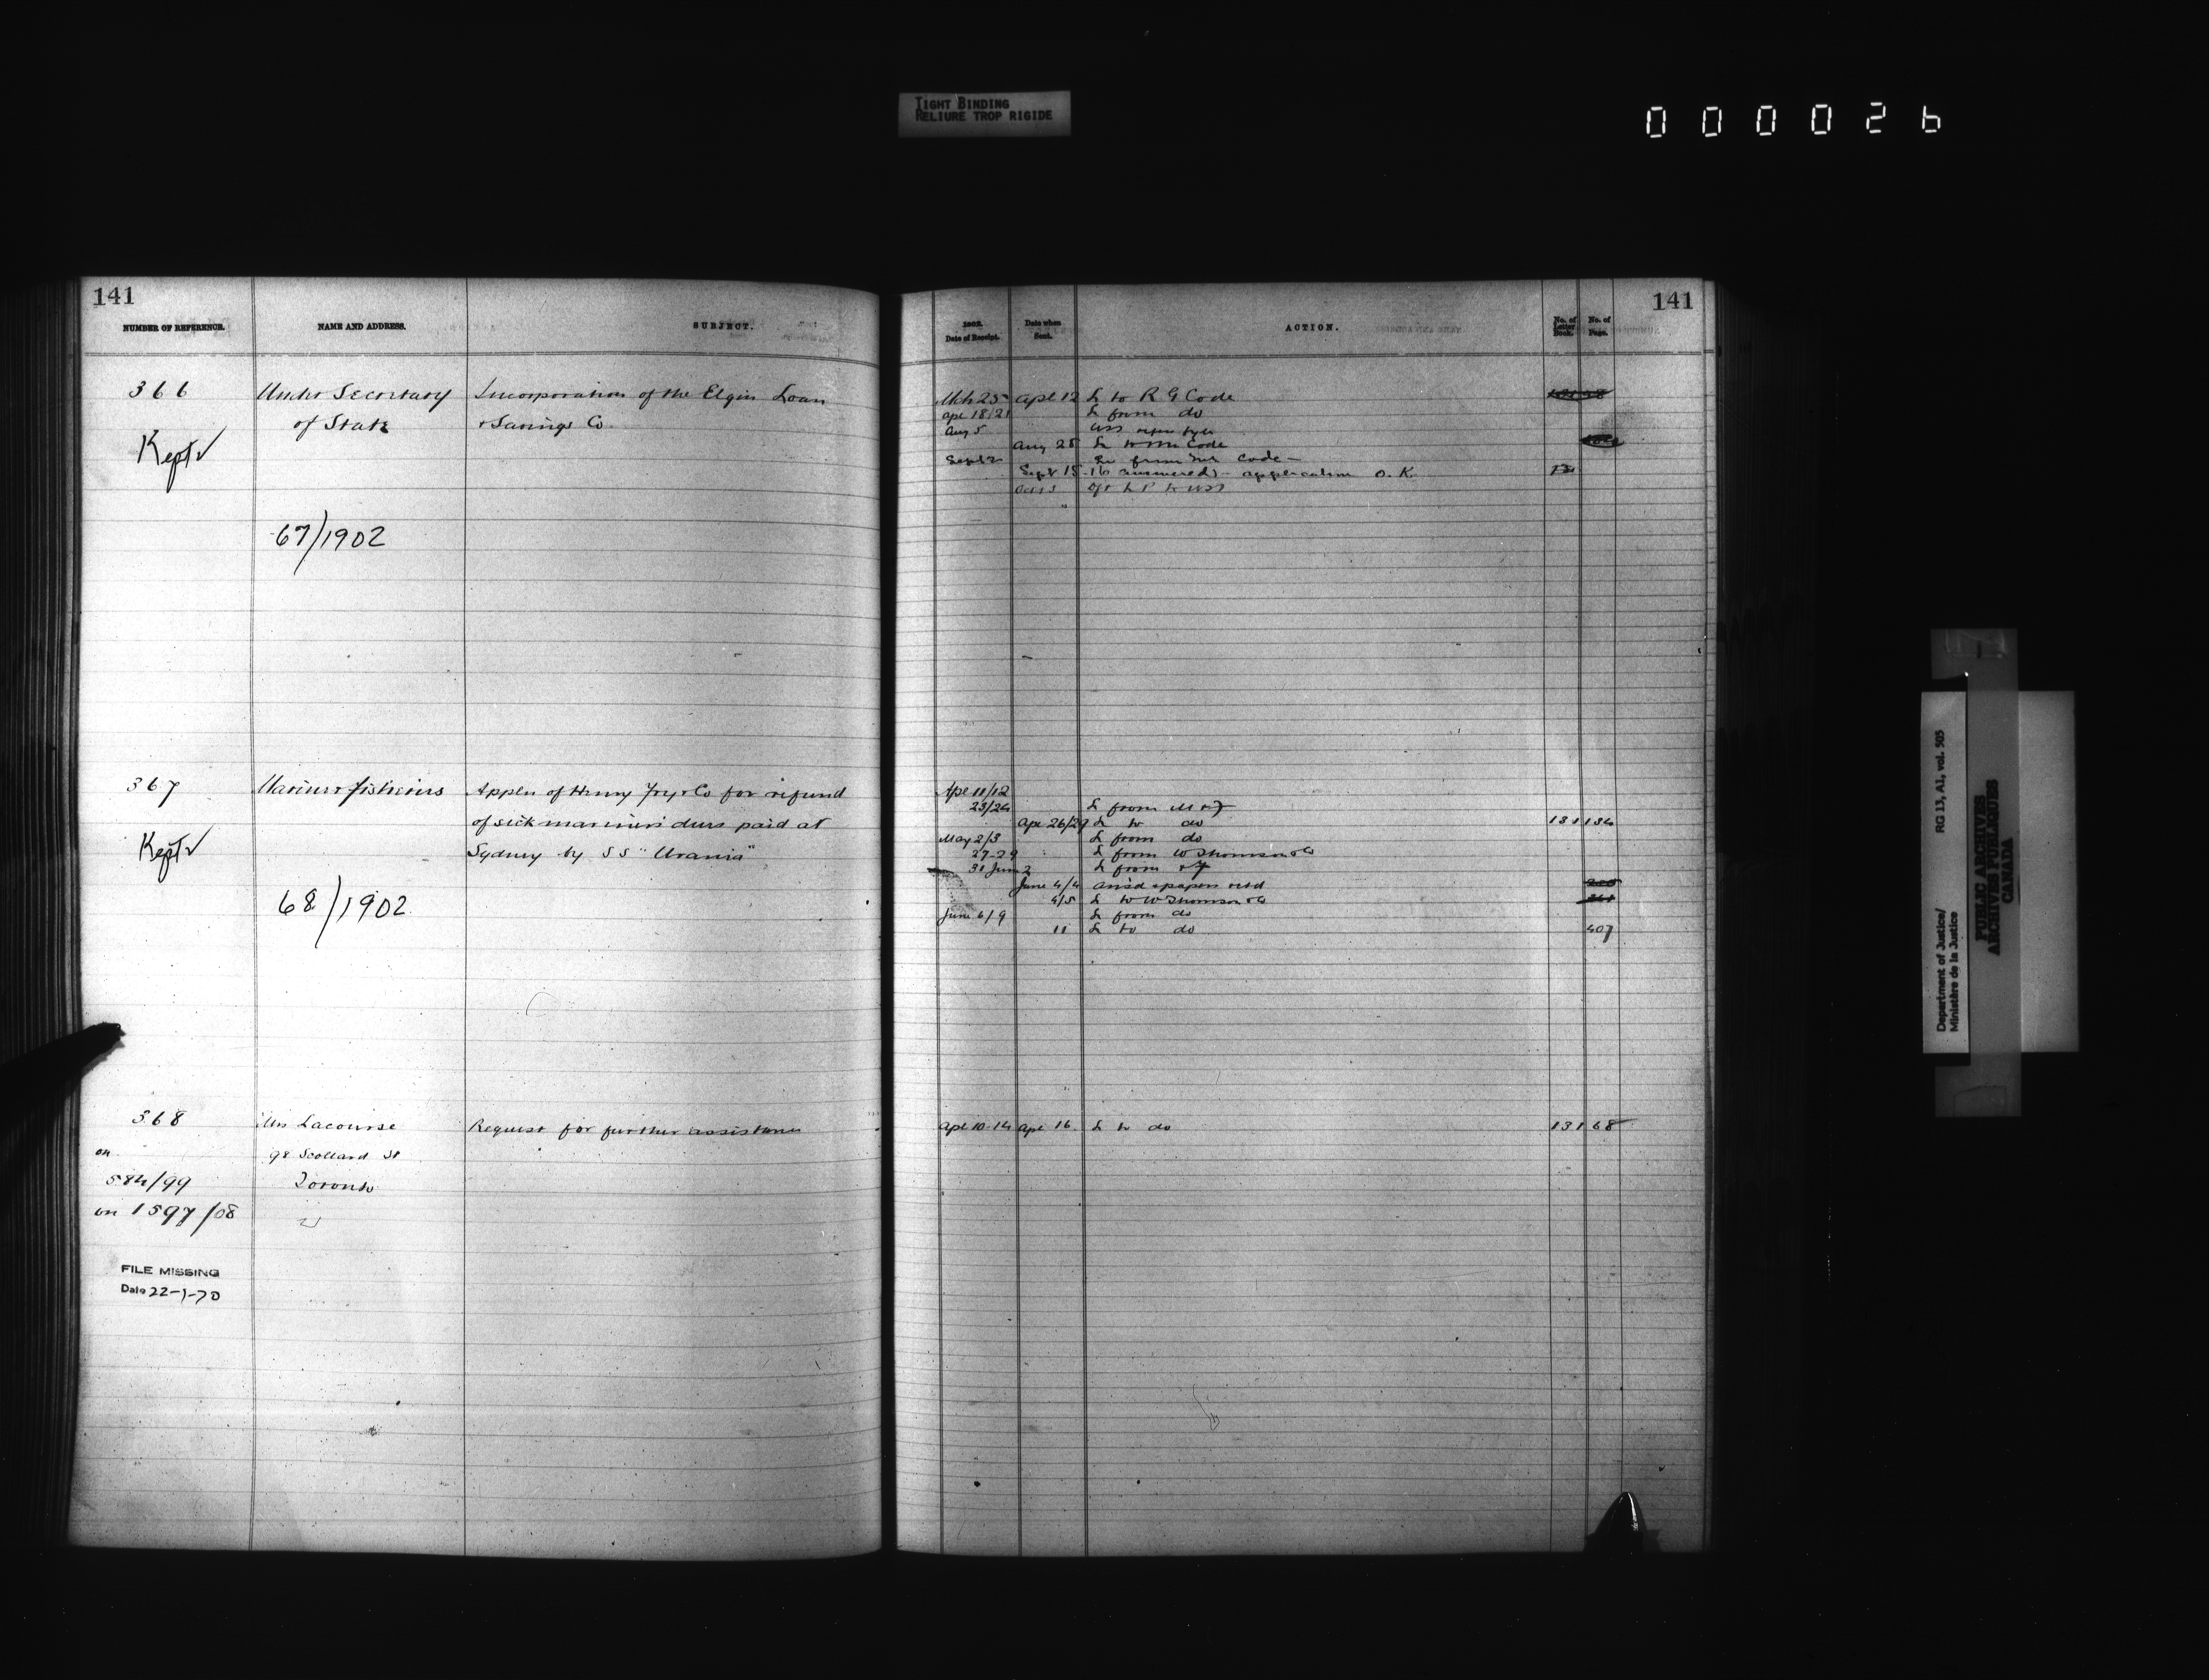 TIGHT BINDING
RELIURE TROP RIGIDE
000026
141
NUMBER OF REFERENCE.
NAME AND ADDRESS.
SUBJECT.
366
Under Secretary
Incorporation of the Elgin Loan
of State
& Savings Co.
Kept √
67/1902
367
Marine & Fisheries
Appln of Henry Fry & Co for refund
of sick mariners' dues paid at
Sydney by SS "Urania"
Kept √
68/1902
368
Mrs Lacourse
Request for further assistance
on
98 Scollard St
584/99
Toronto
on 1597/08
FILE MISSING
Date 22-1-70
141
1902.
Date of Receipt.
Date when
Sent.
ACTION.
No. of
Letter
Book.
No. of
Page.
Mch 25 Apl 12 L to R G Code
Apl 18/21 L from do
Aug 5
Aug 25 L to Mr Code
Sept 2 L from Mr Code
Sept 15-16 answered - application O.K.
Ape 11/12
23/24 L from M & F
Ape 26/29 L to do 131 134
May 2/3 L from do
27-29 L from W Thomson & Co
31 June 2 L from & F
June 4/4 ansd & papers retd
4/5 L to W Thomson & Co
June 6/9 L from do
11 L to do 407
Apl 10-14 Apl 16. L to do 131 68
Department of Justice/
Ministère de la Justice
RG 13, A1, vol. 505
PUBLIC ARCHIVES
ARCHIVES PUBLIQUES
CANADA